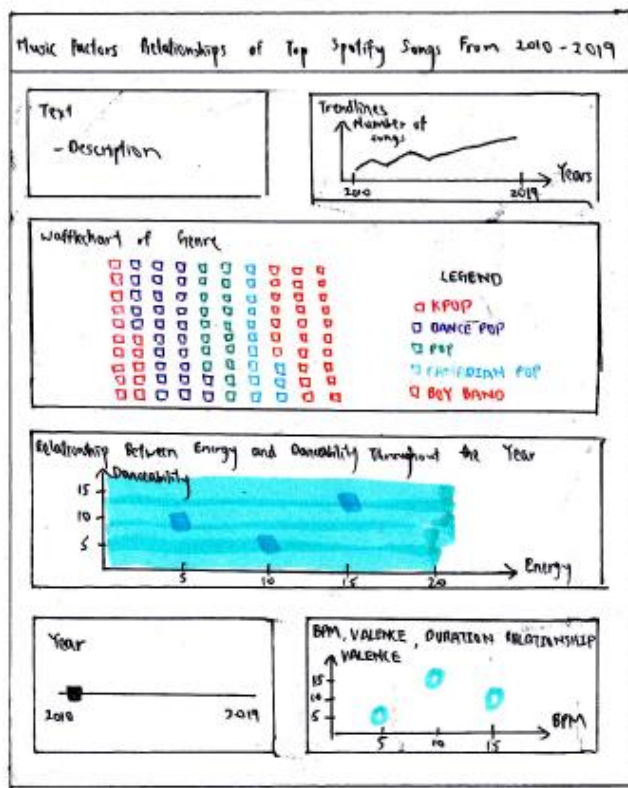 Music Factors Relationships of Top Spotify Songs From 2010 - 2019
Text
- Description
Trendlines
Number of
songs
2010
2019
Years
Wafflechart of Genre
LEGEND
KPOP
DANCE POP
POP
CANADIAN POP
BOY BAND
Relationship Between Energy and Danceability Throughout the Year
Danceability
15
10
5
5
10
15
20
Energy
Year
2010
2019
BPM, VALENCE, DURATION RELATIONSHIP
VALENCE
15
10
5
5
10
15
BPM